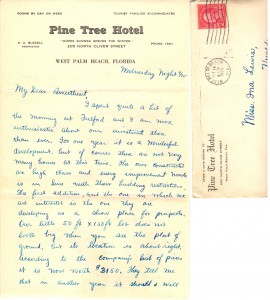 ROOMS BY DAY OR WEEK
TOURIST FAMILIES ACCOMMODATED
Pine Tree Hotel
"WHERE SUMMER SPENDS THE WINTER"
205 NORTH OLIVER STREET
PROPRIETOR
PHONE
WEST PALM BEACH, FLORIDA
Wednesday Night
My Dear Sweetheart,
I spent quite a lot of
the morning at Fulford and I am more
enthusiastic about our investment than
than ever. For one year it is a Wonderful
development, but of course there are not very
many homes at this time. The ones constructed
are high class and every improvement made
is in line with their building restrictions.
The first addition, and the one in which we
are interested is the one they are
developing as a show place for prospects.
Our lots 50 ft x 150 ft lot does not
look big when you see the plot of
ground, but its location is about right.
According to the company's list of prices
it is now worth $3150. They tell me
that in another year it should sell
Pine Tree Hotel
Miss Ina Lewis,